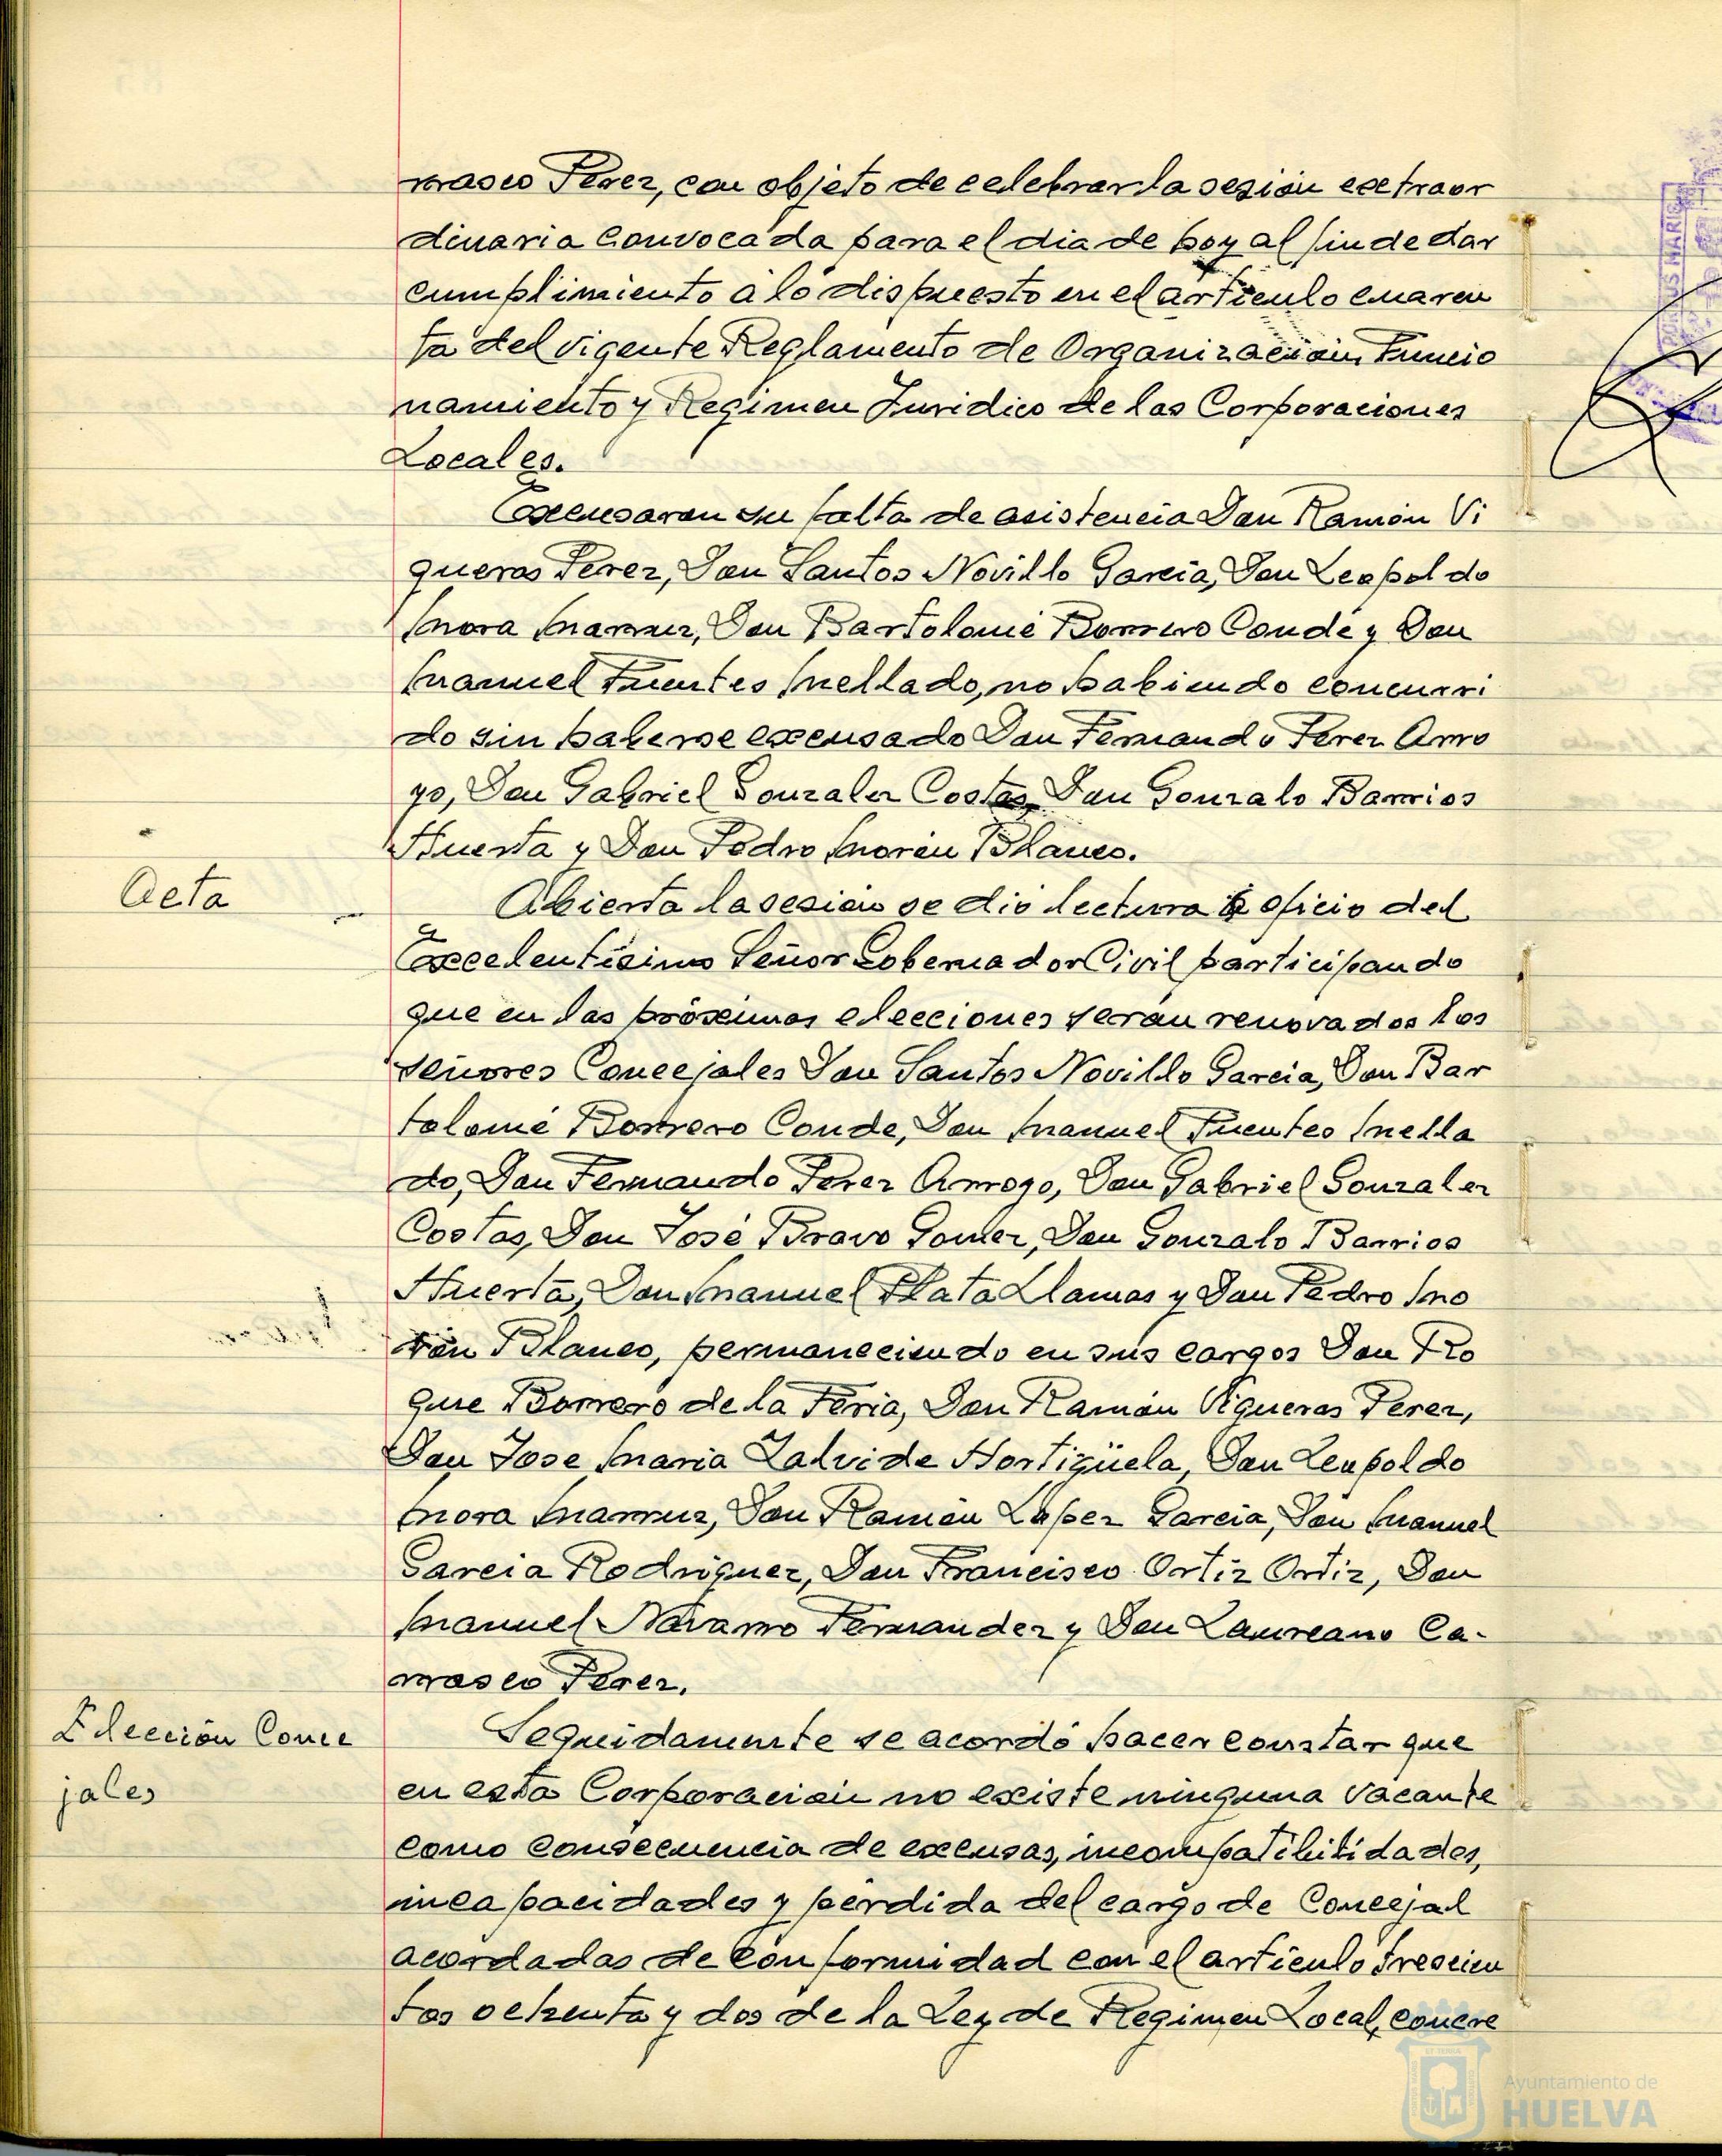 rrasco Perez, con objeto de celebrar la sesión extraor
dinaria convocada para el dia de hoy al fin de dar
cumplimiento a lo dispuesto en el articulo cuaren
ta del vigente Reglamento de Organización Funcio
namiento y Regimen Juridico de las Corporaciones
Locales.
Excusaron su falta de asistencia Don Ramón Vi
gueras Perez, Don Santos Novillo Garcia, Don Leopoldo
Mora Marrus, Don Bartolomé Borrero Conde y Don
Manuel Fuentes Mellado, no habiendo concurri
do sin haberse excusado Don Fernando Perez Arro
yo, Don Gabriel Gonzalez Costas, Don Gonzalo Barrios
Huerta y Don Pedro Morón Blanco.
Acta
Abierta la sesión se dió lectura a oficio del
Excelentísimo Señor Gobernador Civil participando
que en las próximas elecciones serán renovados los
señores Concejales Don Santos Novillo Garcia, Don Bar
tolomé Borrero Conde, Don Manuel Fuentes Mella
do, Don Fernando Perez Arroyo, Don Gabriel Gonzalez
Costas, Don José Bravo Gomez, Don Gonzalo Barrios
Huerta, Don Manuel Plata Llamas y Don Pedro Mo
rón Blanco, permaneciendo en sus cargos Don Ro
que Borrero de la Feria, Don Ramón Vigueras Perez,
Don Jose Maria Zalvide Hortigüela, Don Leopoldo
Mora Marrus, Don Ramón López Garcia, Don Manuel
Garcia Rodriguez, Don Francisco Ortiz Ortiz, Don
Manuel Navarro Fernandez y Don Laureano Ca-
rrasco Perez.
Elección Conce
jales
Seguidamente se acordó hacer constar que
en esta Corporación no existe ninguna vacante
como consecuencia de excusas, incompatibilidades,
incapacidades y perdida del cargo de Concejal
acordadas de conformidad con el artículo trescien
tos ochenta y dos de la Ley de Regimen Local, concre
Ayuntamiento de
HUELVA